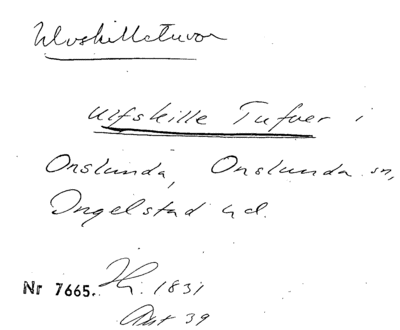 Ulvskilletuvor
Ulfskille Tufver i
Onslunda, Onslunda sn,
Ingelstad hd.
Nr 7665. 1831
Akt 39